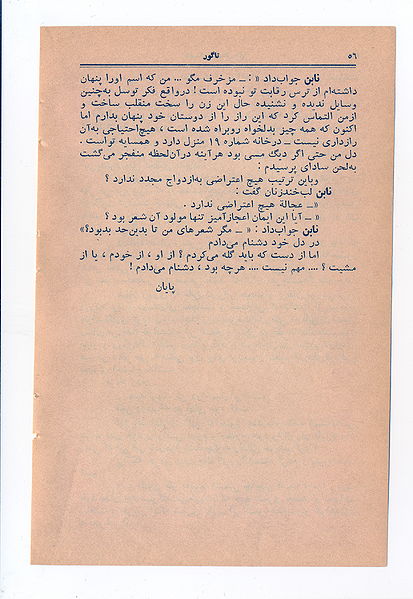 ۵۶
تاگور
نابن جواب‌داد « : ــ مزخرف مگو ... من که اسم اورا پنهان
داشته‌ام از ترس رقابت تو نبوده است ! درواقع فکر توسل به‌چنین
وسایل ندیده و نشنیده حال این زن را سخت منقلب ساخت و
ازمن التماس کرد که این راز را از دوستان خود پنهان بدارم اما
اکنون که همه چیز بدلخواه روبراه شده است ، هیچ‌احتیاجی به‌آن
رازداری نیست ــ درخانه شماره ۱۹ منزل دارد و همسایه تواست .
دل من حتی اگر دیگ مسی بود هرآینه درآن‌لحظه منفجر می‌گشت
به‌لحن ساده‌ای پرسیدم :
وباین ترتیب هیچ اعتراضی به‌ازدواج مجدد ندارد ؟
نابن لب‌خندزنان گفت :
«ــ عجالة هیچ اعتراضی ندارد .
« ــ آیا این ایمان اعجازآمیز تنها مولود آن شعر بود ؟
نابن جواب‌داد : « ــ مگر شعرهای من تا بدین‌حد بدبود؟»
در دل خود دشنام می‌دادم
اما از دست که باید گله می‌کردم ؟ از او ، از خودم ، یا از
مشیت ؟ .... مهم نیست .... هرچه بود ، دشنام می‌دادم !
پایان